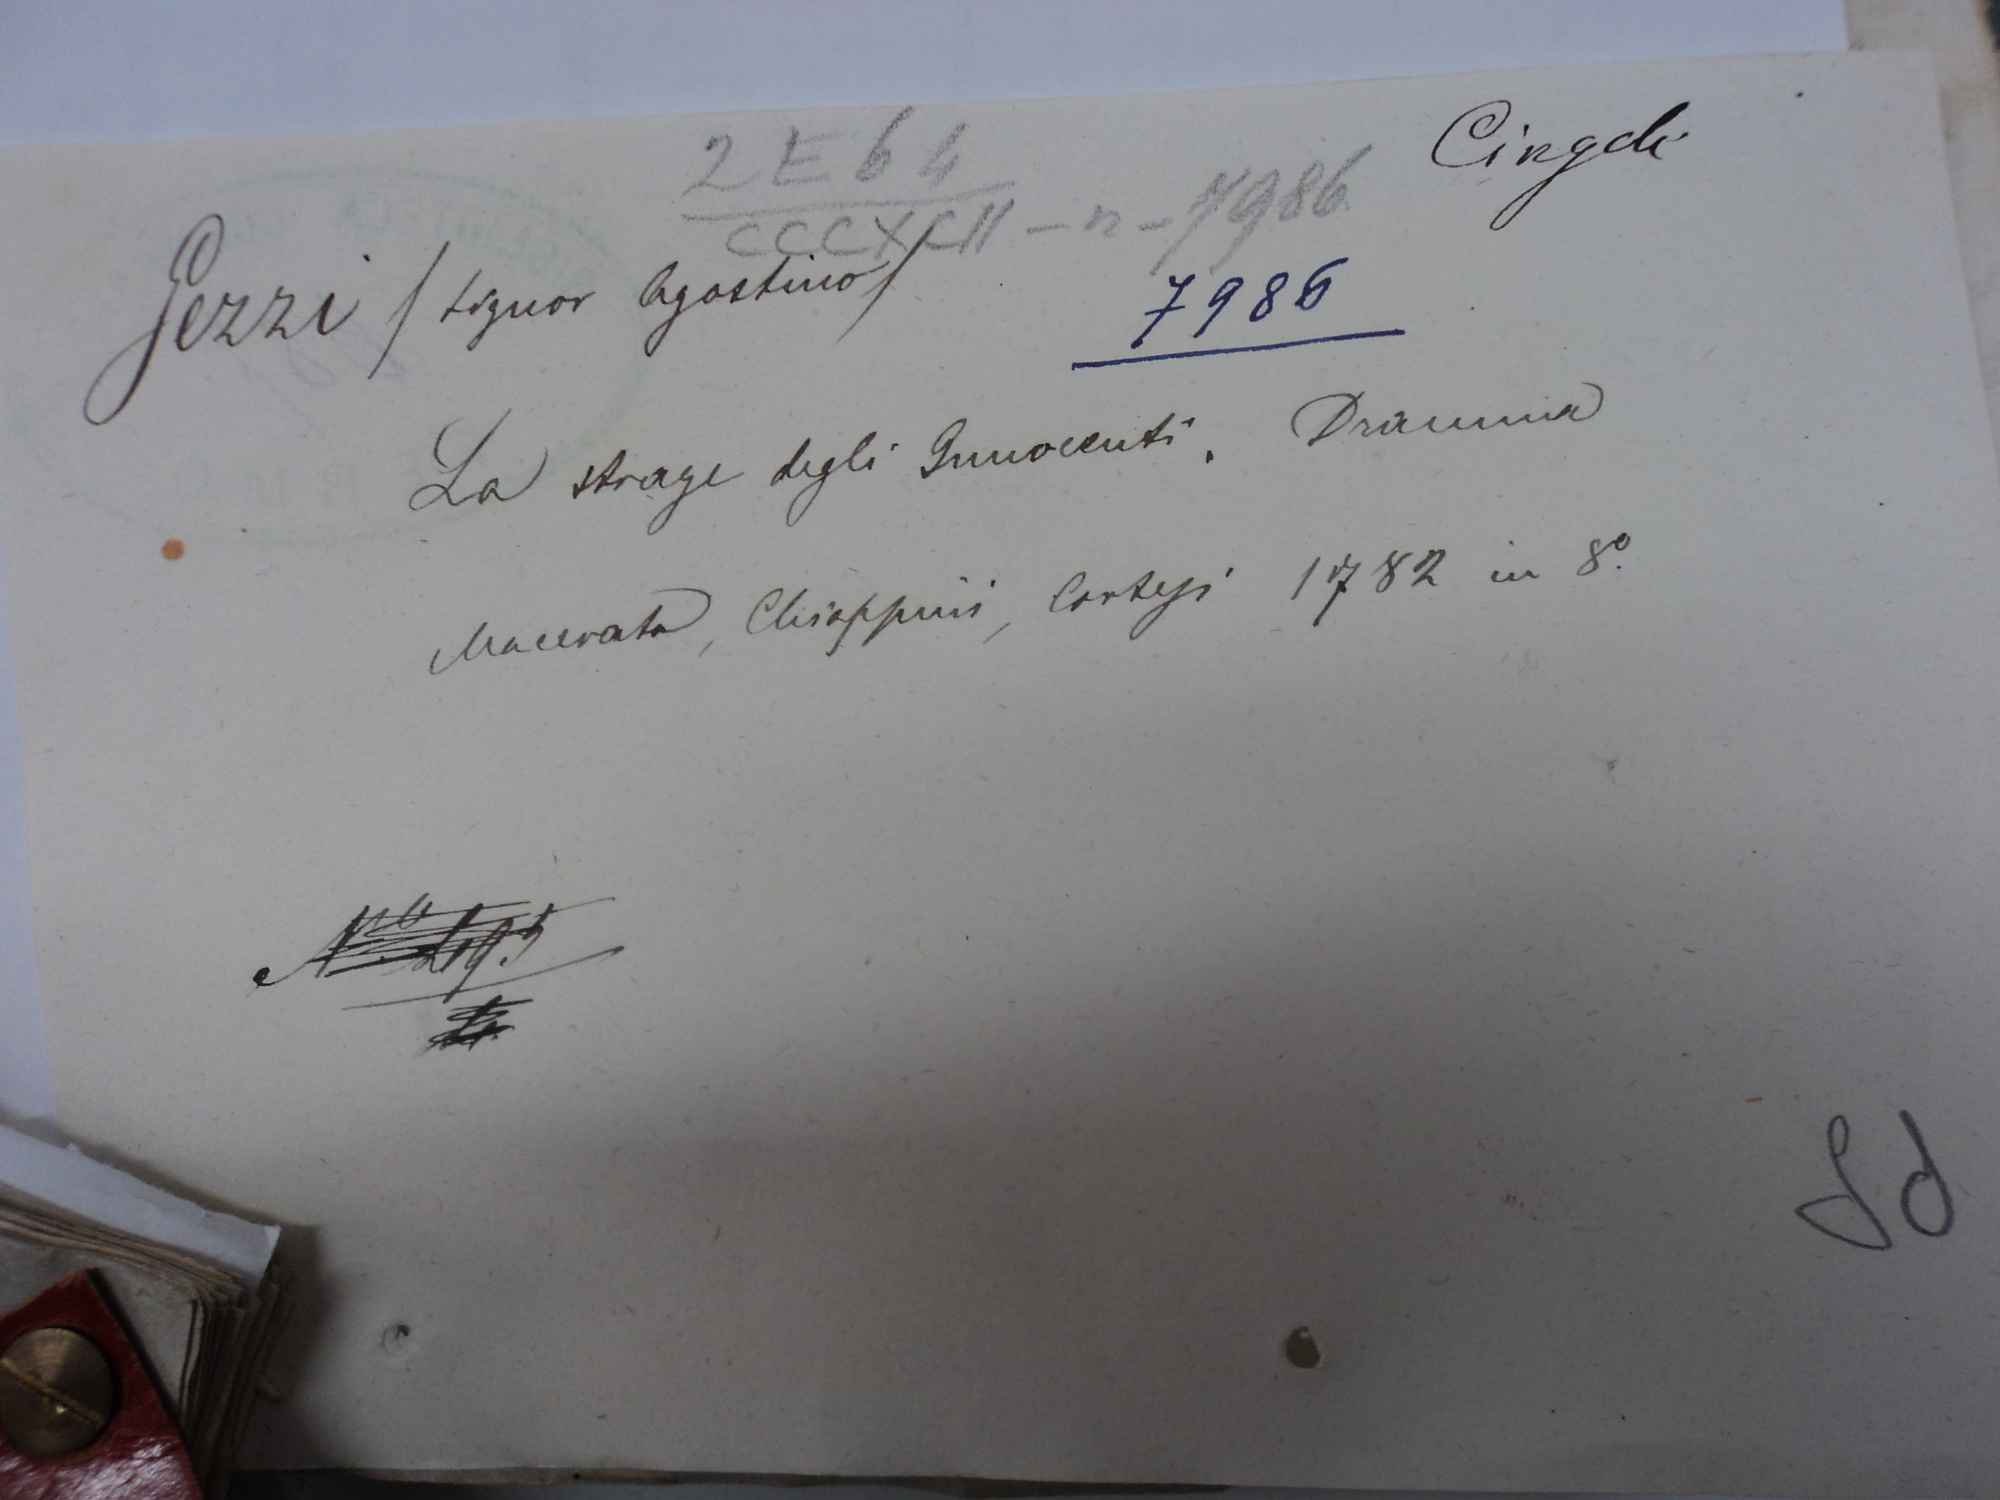 Cingoli
2 E 64
CCCXCII - n - 7986
Pezzi / Signor Agostino /
7986
La strage degli Innocenti. Dramma
Macerata, Chiappini, Cortesi 1782 in 8°.
Sd